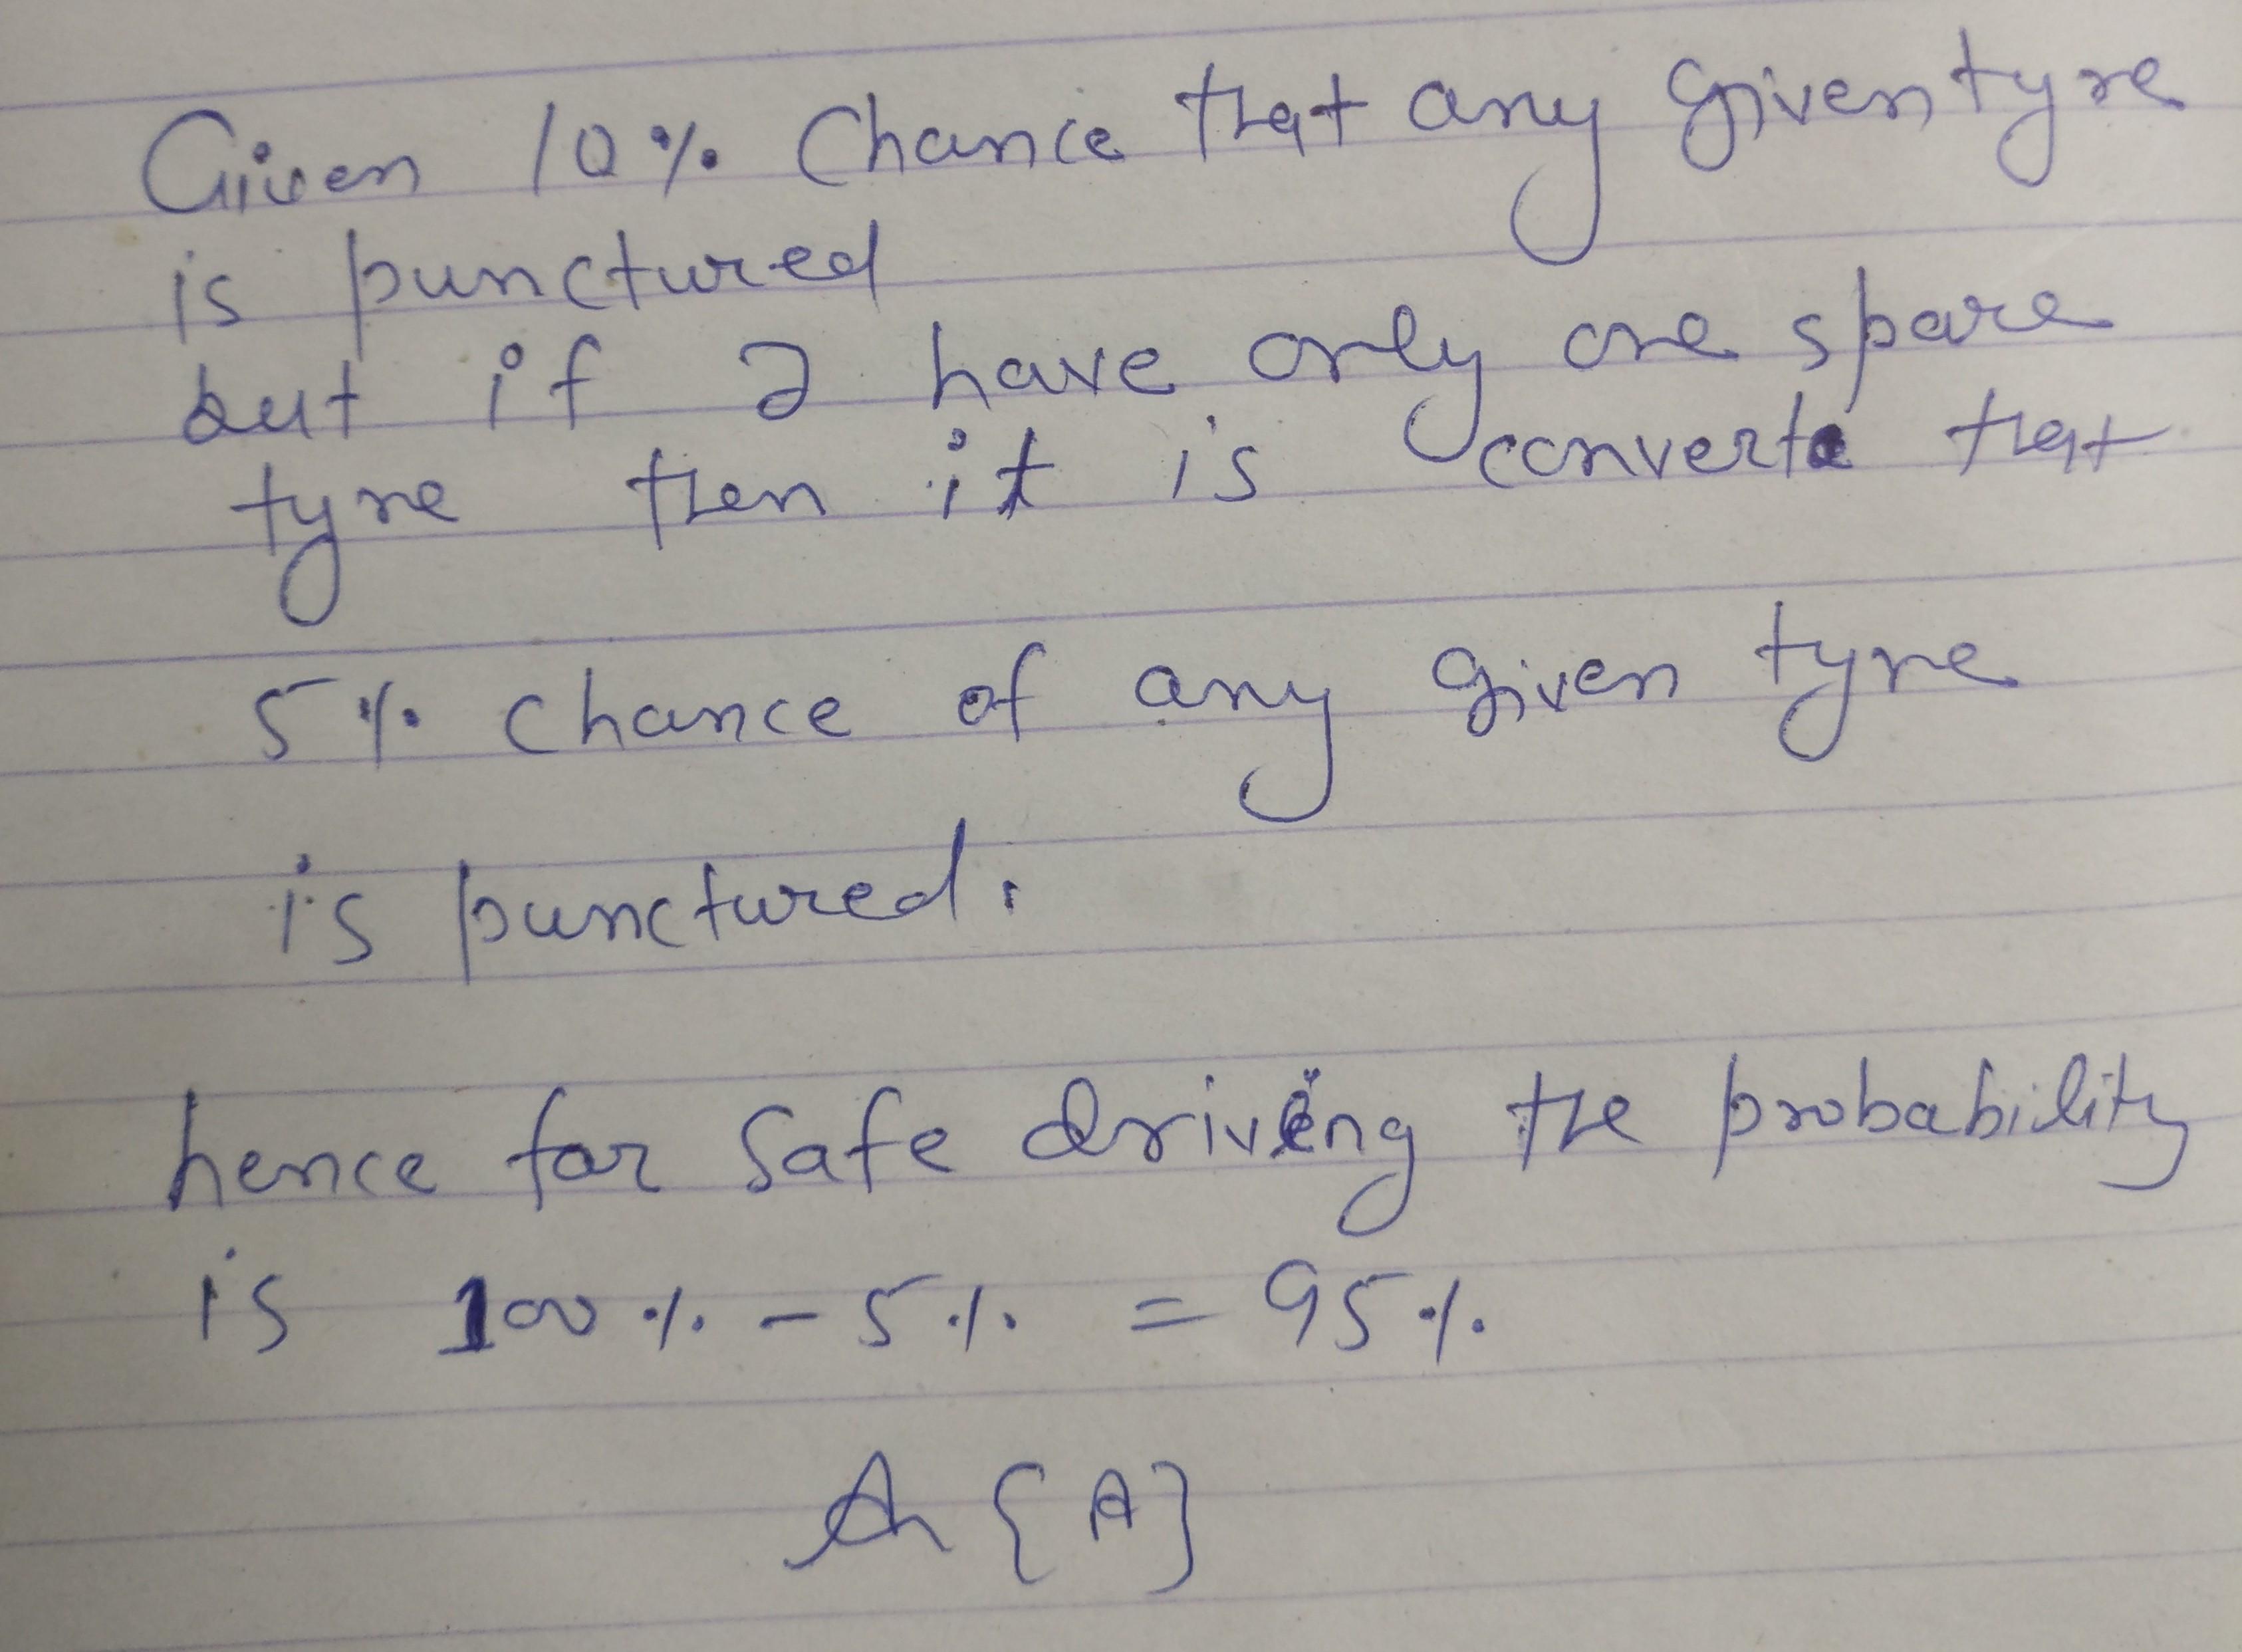 Given 10% Chance that any given tyre
is punctured
but if I have only one spare
tyre then it is converte that
5% chance of any given tyre
is punctured.
hence for Safe driving the probability
is 100% - 5% = 95%
{A}